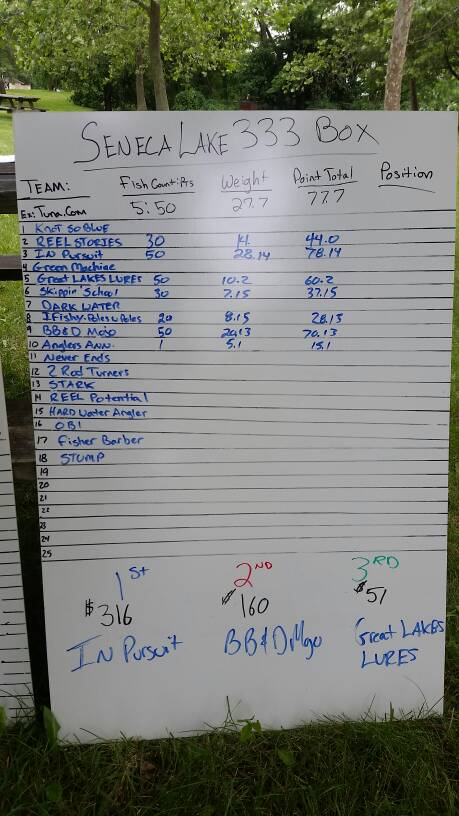 SENECA LAKE 333 BOX
TEAM: Fish Count:Pts Weight Point Total Position
Ex: Tuna.Com 5:50 27.7 77.7
1 KNOT SO BLUE
2 REEL STORIES 30 14. 44.0
3 IN Pursuit 50 28.14 78.14
4 Green Machine
5 Great LAKES LURES 50 10.2 60.2
6 Skippin' School 30 7.15 37.15
7 DARK WATER
8 IFishy-Poles u Poles 20 8.15 28.15
9 BB&D Mojo 50 20.13 70.13
10 Anglers Ann. 1 5.1 15.1
11 Never Ends
12 2 Rod Turners
13 STARK
14 REEL Potential
15 HARD Water Angler
16 OBI
17 Fisher Barber
18 STUMP
19
20
21
22
23
24
25
1st 2ND 3RD
$316 $160 $51
IN Pursuit BB&D Mojo Great LAKES
LURES